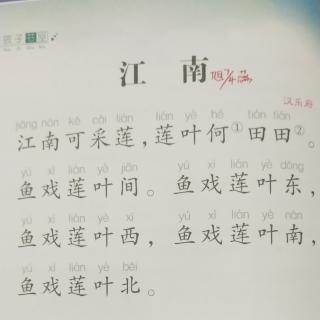 江 南
汉乐府
jiāng nán kě cǎi lián lián yè hé tián tián
江南可采莲，莲叶何①田田②。
yú xì lián yè jiān yú xì lián yè dōng
鱼戏莲叶间。鱼戏莲叶东，
yú xì lián yè xī yú xì lián yè nán
鱼戏莲叶西，鱼戏莲叶南，
yú xì lián yè běi
鱼戏莲叶北。